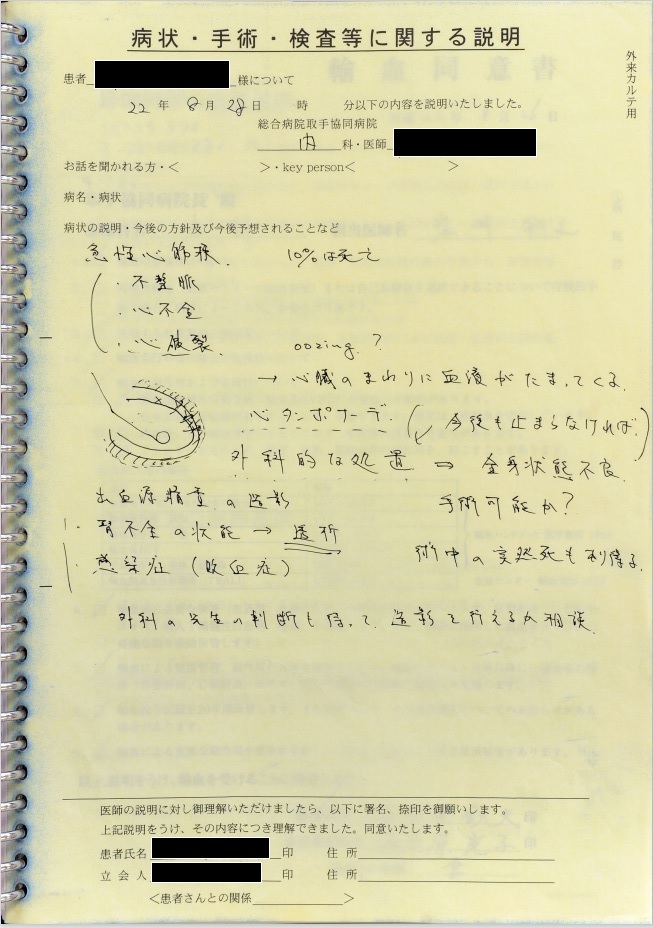 病状・手術・検査等に関する説明
外来カルテ用
患者 様について
22年 8月 28日 時 分以下の内容を説明いたしました。
総合病院取手協同病院
内 科・医師
お話を聞かれる方・< >・key person< >
病名・病状
病状の説明・今後の方針及び今後予想されることなど
急性心筋梗塞. 10%は死亡
・不整脈
・心不全
・心破裂. oozing.?
→ 心臓のまわりに血液がたまってくる.
心タンポナーデ. (今後も止まらなければ.)
外科的な処置 ⇒ 全身状態不良.
出血源精査の造影 手術可能か?
・腎不全の状態 → 透析
術中の突然死も
・感染症(敗血症)
外科の先生の判断も待って. 造影を行えるか相談.
医師の説明に対し御理解いただけましたら、以下に署名、捺印を御願いします。
上記説明をうけ、その内容につき理解できました。同意いたします。
患者氏名 印 住所
立会人 印 住所
<患者さんとの関係 >